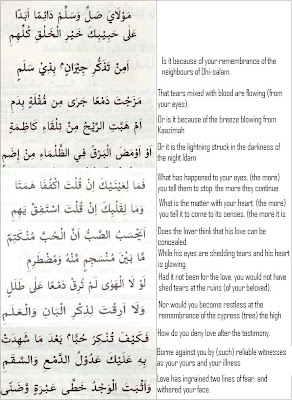 مَوْلَايَ صَلِّ وَسَلِّمْ دَائِمًا أَبَدًا
عَلَى حَبِيبِكَ خَيْرِ الْخَلْقِ كُلِّهِمِ
أَمِنْ تَذَكُّرِ جِيْرَانٍ بِذِيْ سَلَمِ
Is it because of your remembrance of the
neighbours of Dhi-salam.
مَزَجْتَ دَمْعًا جَرَى مِنْ مُقْلَةٍ بِدَمِ
That tears mixed with blood are flowing (from
your eyes).
أَمْ هَبَّتِ الرِّيْحُ مِنْ تِلْقَاءِ كَاظِمَةٍ
Or is it because of the breeze blowing from
Kaazimah
أَوْ أَوْمَضَ الْبَرْقُ فِي الظَّلْمَاءِ مِنْ إِضَمِ
Or it is the lightning struck in the darkness of
the night Idam
فَمَا لِعَيْنَيْكَ إِنْ قُلْتَ اكْفُفَا هَمَتَا
What has happened to your eyes, (the more)
you tell them to stop, the more they continue
وَمَا لِقَلْبِكَ إِنْ قُلْتَ اسْتَفِقْ يَهِمِ
What is the matter with your heart, (the more)
you tell it to come to its senses, (the more it is
أَيَحْسَبُ الصَّبُّ أَنَّ الْحُبَّ مُنْكَتِمٌ
Does the lover think that his love can be
concealed.
مَا بَيْنَ مُنْسَجِمٍ مِنْهُ وَمُضْطَرِمِ
While his eyes are shedding tears and his heart
is glowing.
لَوْ لَا الْهَوَى لَمْ تُرِقْ دَمْعًا عَلَى طَلَلٍ
Had it not been for the love, you would not have
shed tears at the ruins (of your beloved).
وَلَا أَرِقْتَ لِذِكْرِ الْبَانِ وَالْعَلَمِ
Nor would you become restless at the
remembrance of the cypress (tree) the high
فَكَيْفَ تُنْكِرُ حُبًّا بَعْدَ مَا شَهِدَتْ
How do you deny love after the testimony.
بِهِ عَلَيْكَ عُدُوْلُ الدَّمْعِ وَالسَّقَمِ
Borne against you by (such) reliable witnesses
as your yours and your illness
وَأَثْبَتَ الْوَجْدُ خَطَّيْ عَبْرَةٍ وَضَنًى
Love has ingrained two lines of fear, and
withered your face.